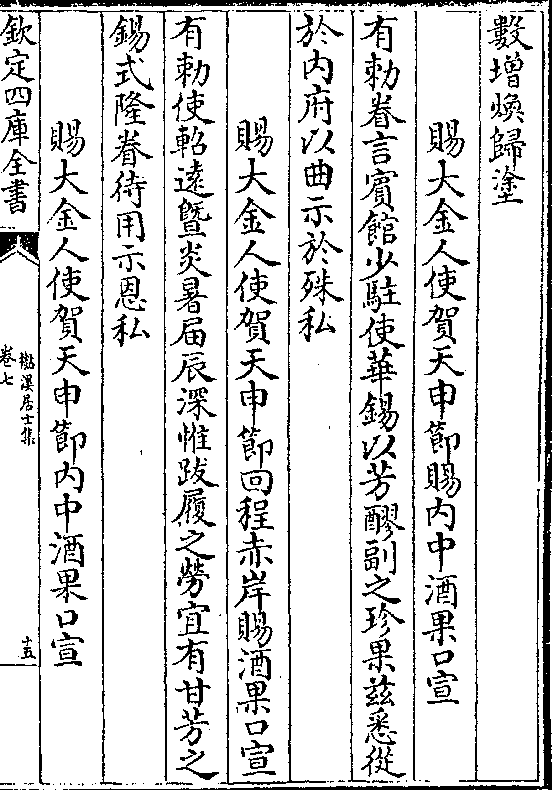 數增煥歸塗
賜大金人使賀天申節賜内中酒果口宣
有勅眷言賓館少駐使華錫以芳醪副之珍果兹悉從
於内府以曲示於殊私
賜大金人使賀天申節回程赤岸賜酒果口宣
有勅使軺逺暨炎暑届辰深惟跋履之勞宜有甘芳之
錫式隆眷待用示恩私
賜大金人使賀天申節内中酒果口宣
欽定四庫全書
樵溪居士集
卷七
十五